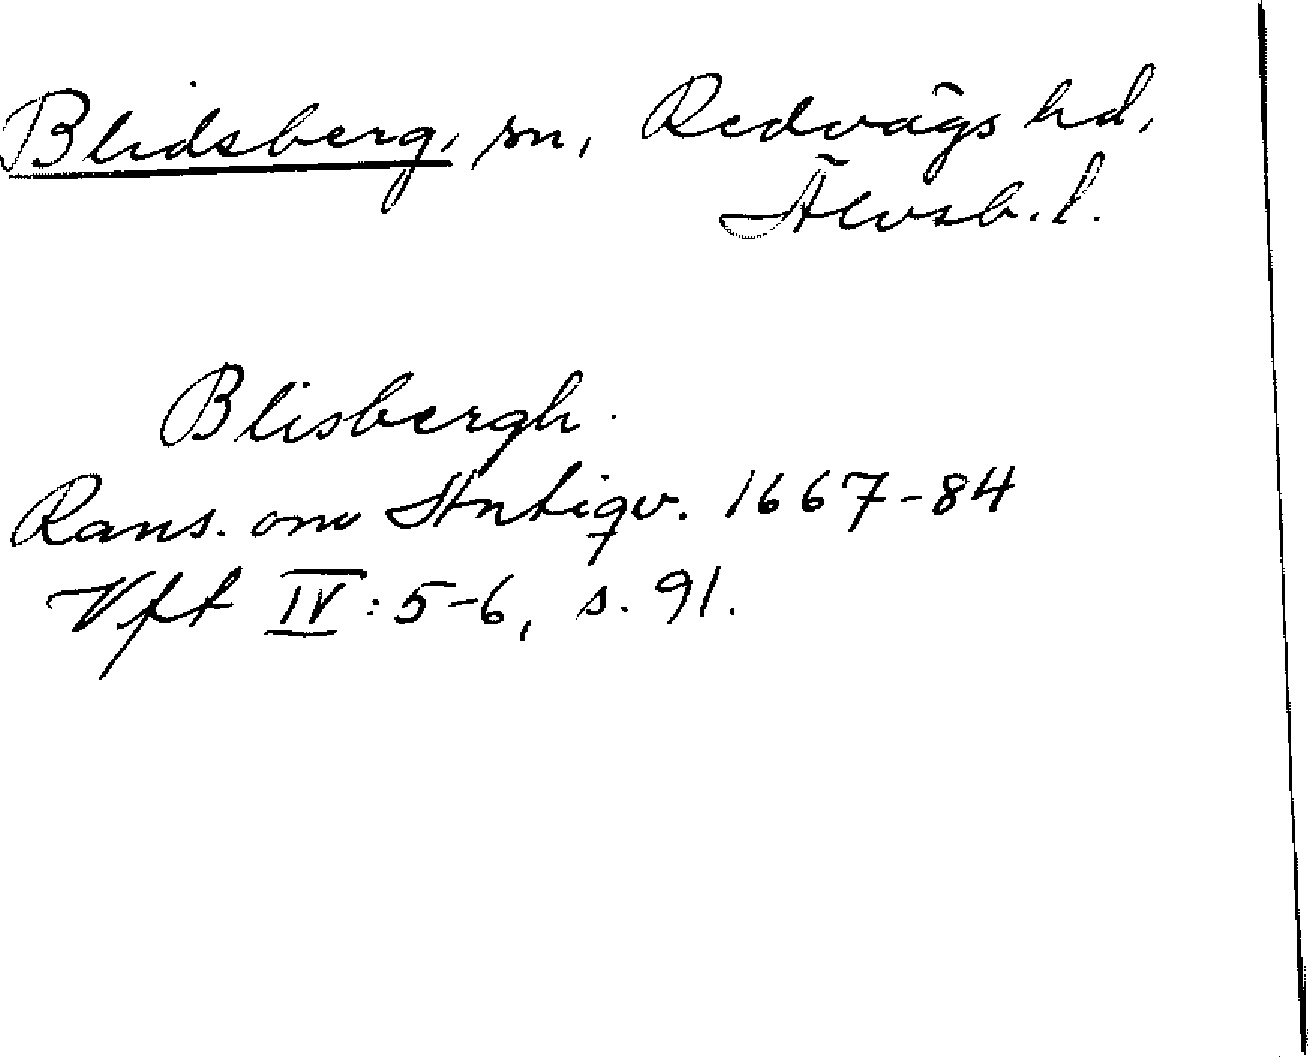 Blidsberg, sn, Redvägs hd,
Älvsb. l.
Blisbergh.
Rans. om Antiqv. 1667-84
Vft IV: 5-6, s. 91.